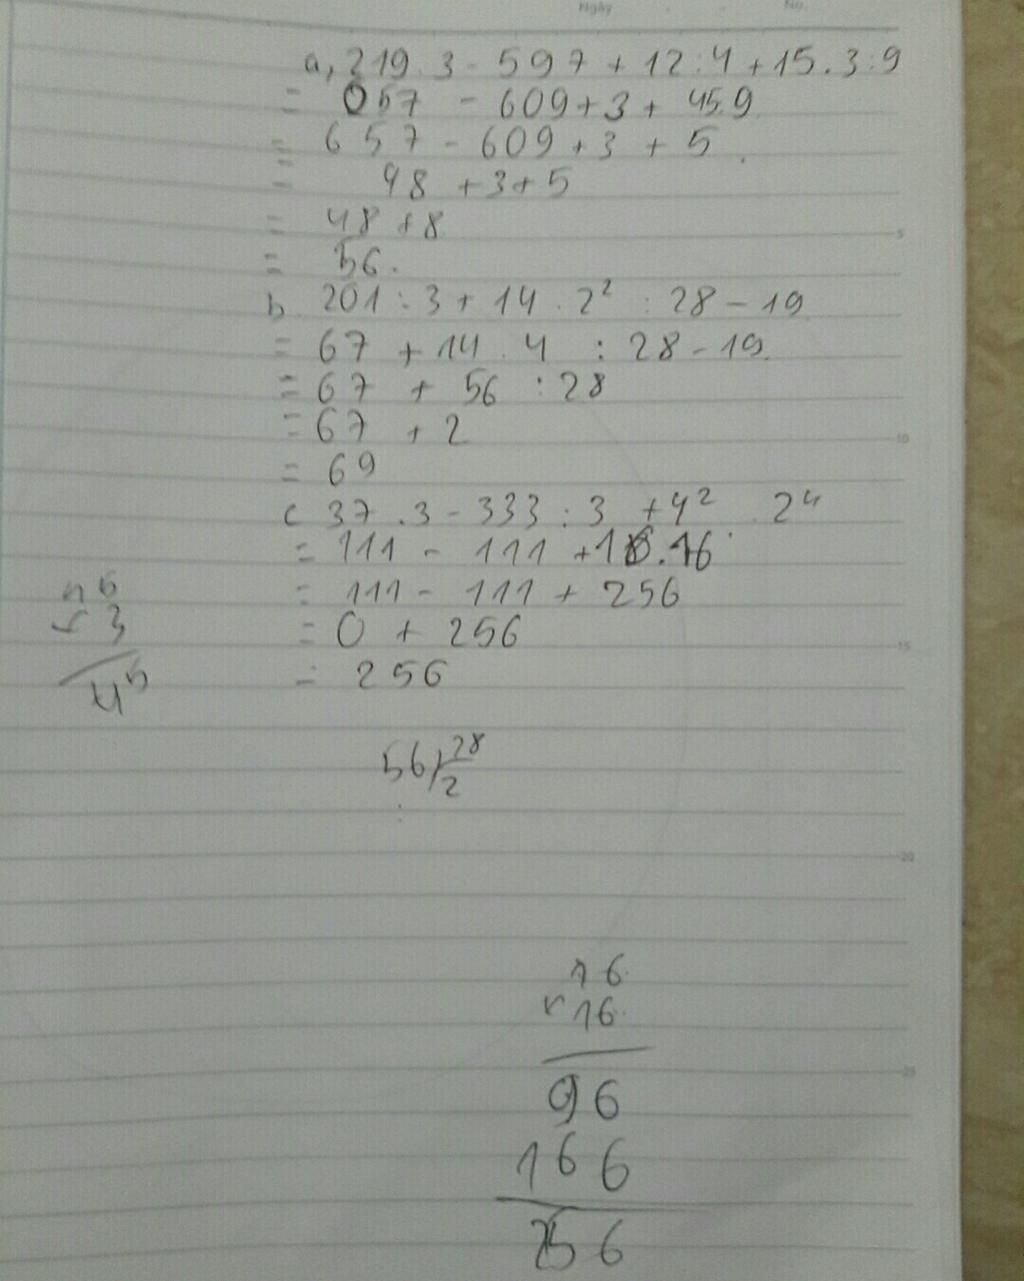 Ngày No.
a, 219.3 - 597 + 12:4 + 15.3:9
= 657 - 609 + 3 + 45.9
= 657 - 609 + 3 + 5
= 48 + 3 + 5
= 48 + 8
= 56.
b 201 : 3 + 14 . 2² : 28 - 19
= 67 + 14 . 4 : 28 - 19
= 67 + 56 : 28
= 67 + 2
= 69
c 37 .3 - 333 : 3 + 4² . 2⁴
= 111 - 111 + 16.16
= 111 - 111 + 256
= 0 + 256
= 256
15
× 3
45
56 28
2
16
× 16
96
166
256
5
10
15
20
25